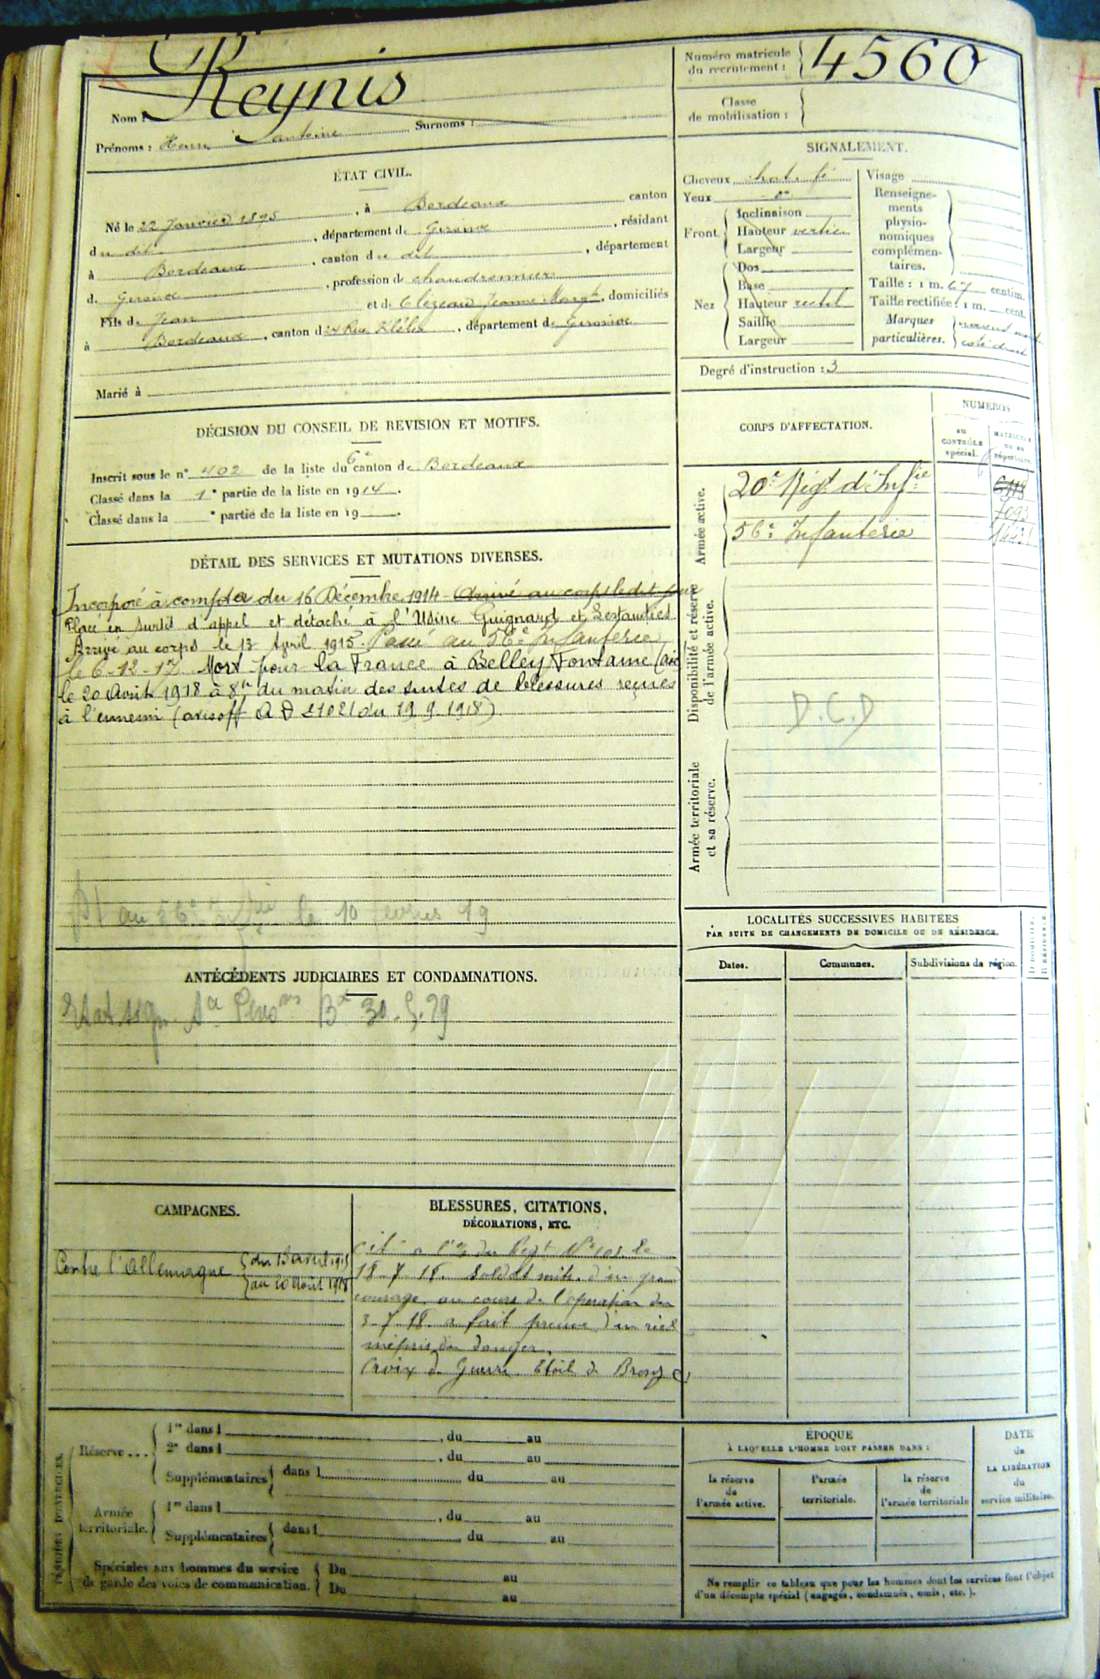 Reynis
Nom :
Prénoms : Henri Antoine Surnoms :
Numéro matricule
du recrutement : 4560
Classe
de mobilisation :
ÉTAT CIVIL.
Né le 22 Janvier 1895, à Bordeaux canton
du dit, département de Gironde, résidant
à Bordeaux, canton du dit, département
de Gironde, profession de chaudronnier
Fils de Jean et de Jeanne, domiciliés
à Bordeaux, canton d 24 Rue, département de Gironde
Marié à
SIGNALEMENT.
Cheveux
Yeux
Front Inclinaison
Hauteur
Largeur
Nez Dos
Base
Hauteur rectil
Saillie
Largeur
Visage
Renseigne-
ments
physio-
nomiques
complémen-
taires.
Taille : 1 m. 67 centim.
Taille rectifiée : 1 m. cent.
Marques
particulières.
Degré d'instruction : 3
DÉCISION DU CONSEIL DE REVISION ET MOTIFS.
Inscrit sous le n° 402 de la liste du 6e canton de Bordeaux
Classé dans la 1e partie de la liste en 1914.
Classé dans la e partie de la liste en 19 .
DÉTAIL DES SERVICES ET MUTATIONS DIVERSES.
Incorporé à compter du 16 Décembre 1914 Arrivé au corps le dit jour
Placé en sursis d'appel et détaché à l'Usine Guignard et
Arrivé au corps le 13 Avril 1915. Passé au 56e Infanterie
le 6-12-17 Mort pour la France à Belley Fontaine
le 20 Août 1918 à 8h du matin des suites de blessures reçues
à l'ennemi (avis off A D 21021 du 19.9.1918)
au 56e le 10 février 19
CORPS D'AFFECTATION.
NUMÉROS
au
CONTRÔLE
spécial.
MATRICULE
ou au
répertoire.
Armée active.
20e Régt d'Infie
56e Infanterie
Disponibilité et réserve
de l'armée active.
D.C.D
Armée territoriale
et sa réserve.
LOCALITÉS SUCCESSIVES HABITÉES
PAR SUITE DE CHANGEMENTS DE DOMICILE OU DE RÉSIDENCE.
Dates. Communes. Subdivisions de région.
ANTÉCÉDENTS JUDICIAIRES ET CONDAMNATIONS.
CAMPAGNES.
Contre l'Allemagne du 13 avril 1915
au 20 Août 1918
BLESSURES, CITATIONS,
DÉCORATIONS, ETC.
Cité à l'o du Régt
18-7-18. Soldat mitr. d'un grand
courage, au cours de l'opération du
3-7-18 a fait preuve d'un réel
mépris du danger.
Croix de Guerre Etoile de Bronze
PÉRIODES D'EXERCICES.
Réserve... 1re dans l , du au
2e dans l , du au
Supplémentaires dans l du au
Armée
territoriale. 1re dans l , du au
Supplémentaires dans l du au
Spéciales aux hommes du service
de garde des voies de communication. Du au
Du au
ÉPOQUE
À LAQUELLE L'HOMME DOIT PASSER DANS :
la réserve
de
l'armée active.
l'armée
territoriale.
la réserve
de
l'armée territoriale
DATE
de
LA LIBÉRATION
du
service militaire.
Ne remplir ce tableau que pour les hommes dont les services font l'objet
d'un décompte spécial (engagés, condamnés, omis, etc.).